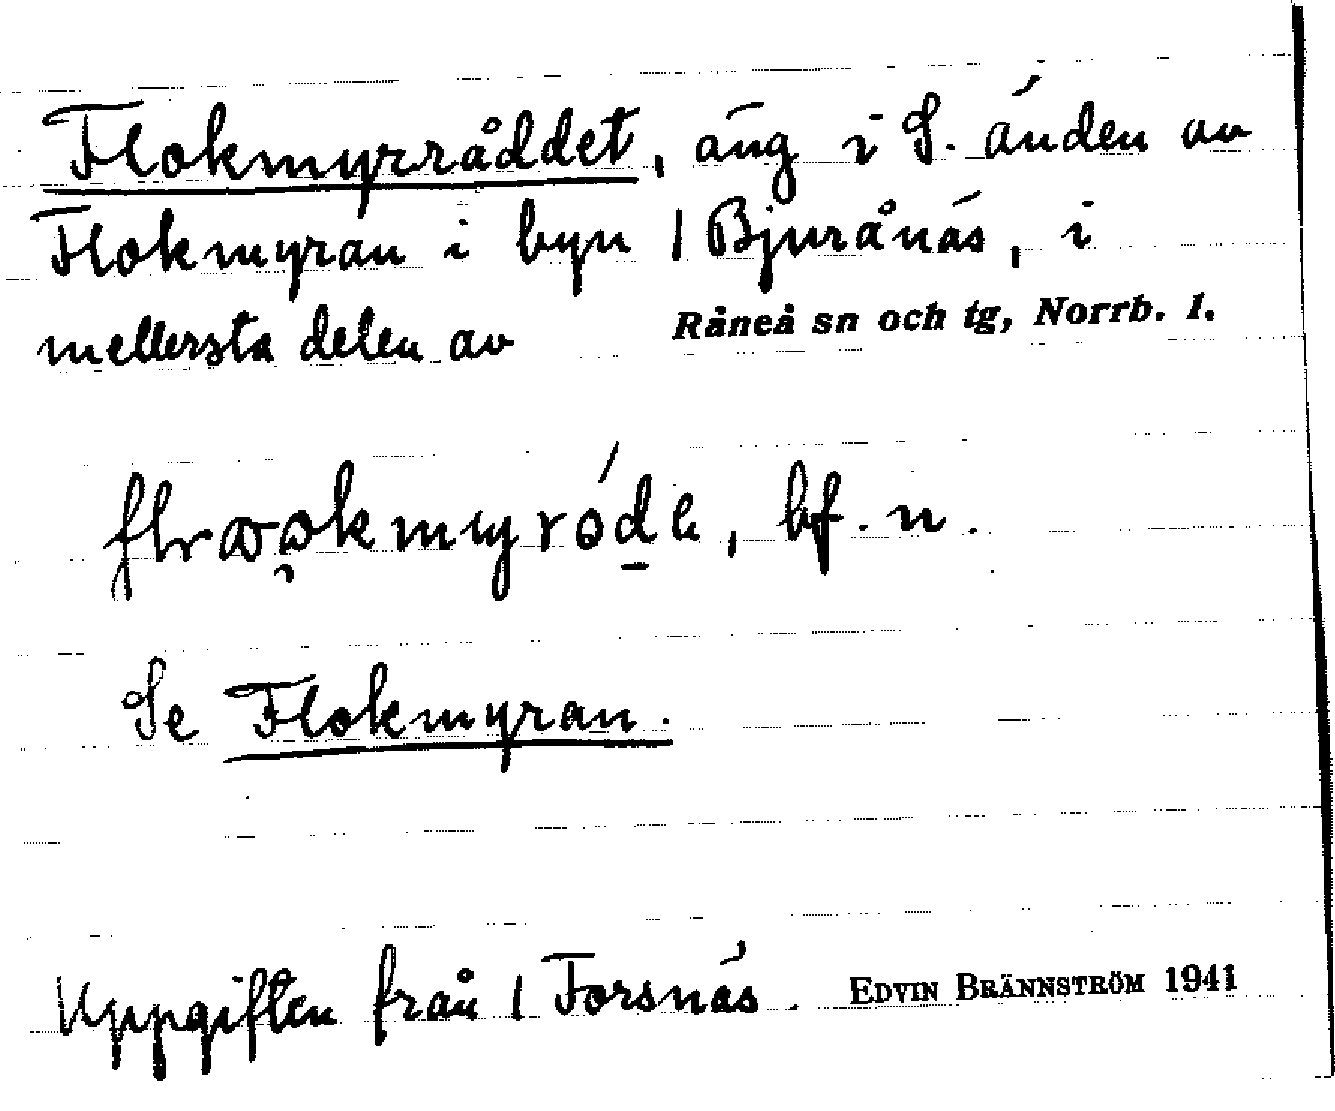 Flokmyrråddet, äng i S. änden av
Flokmyran i byn / Bjurånäs, i
mellersta delen av Råneå sn och tg, Norrb. l.
bf. n.
Se Flokmyran.
Uppgiften från / Forsnäs. EDVIN BRÄNNSTRÖM 1941